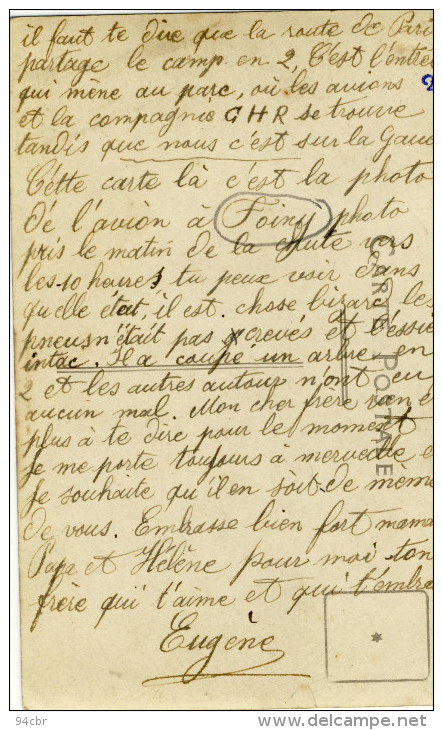 il faut te dire que la route de Pari
partage le camp en 2, C'est l'entré
qui mène au parc, où les avions
et la compagnie C H R se trouve
tandis que nous c'est sur la Gauc
Cette carte là c'est la photo
de l'avion à Foiny photo
pris le matin de la chute vers
les 10 heures tu peux voir dans
quelle état, il est. chose bizarre les
pneus n'était pas crevés et l'essie
intac. Il a coupé un arbre en
2 et les autres autour n'ont eu
aucun mal. Mon cher frère rien
plus à te dire pour le moment
je me porte toujours à merveille e
je souhaite qu'il en soit de même
de vous. Embrasse bien fort mama
Papa et Hélène pour moi ton
frère qui t'aime et qui t'embra
Eugène
CARTE POSTALE
94cbr
delcampe.net